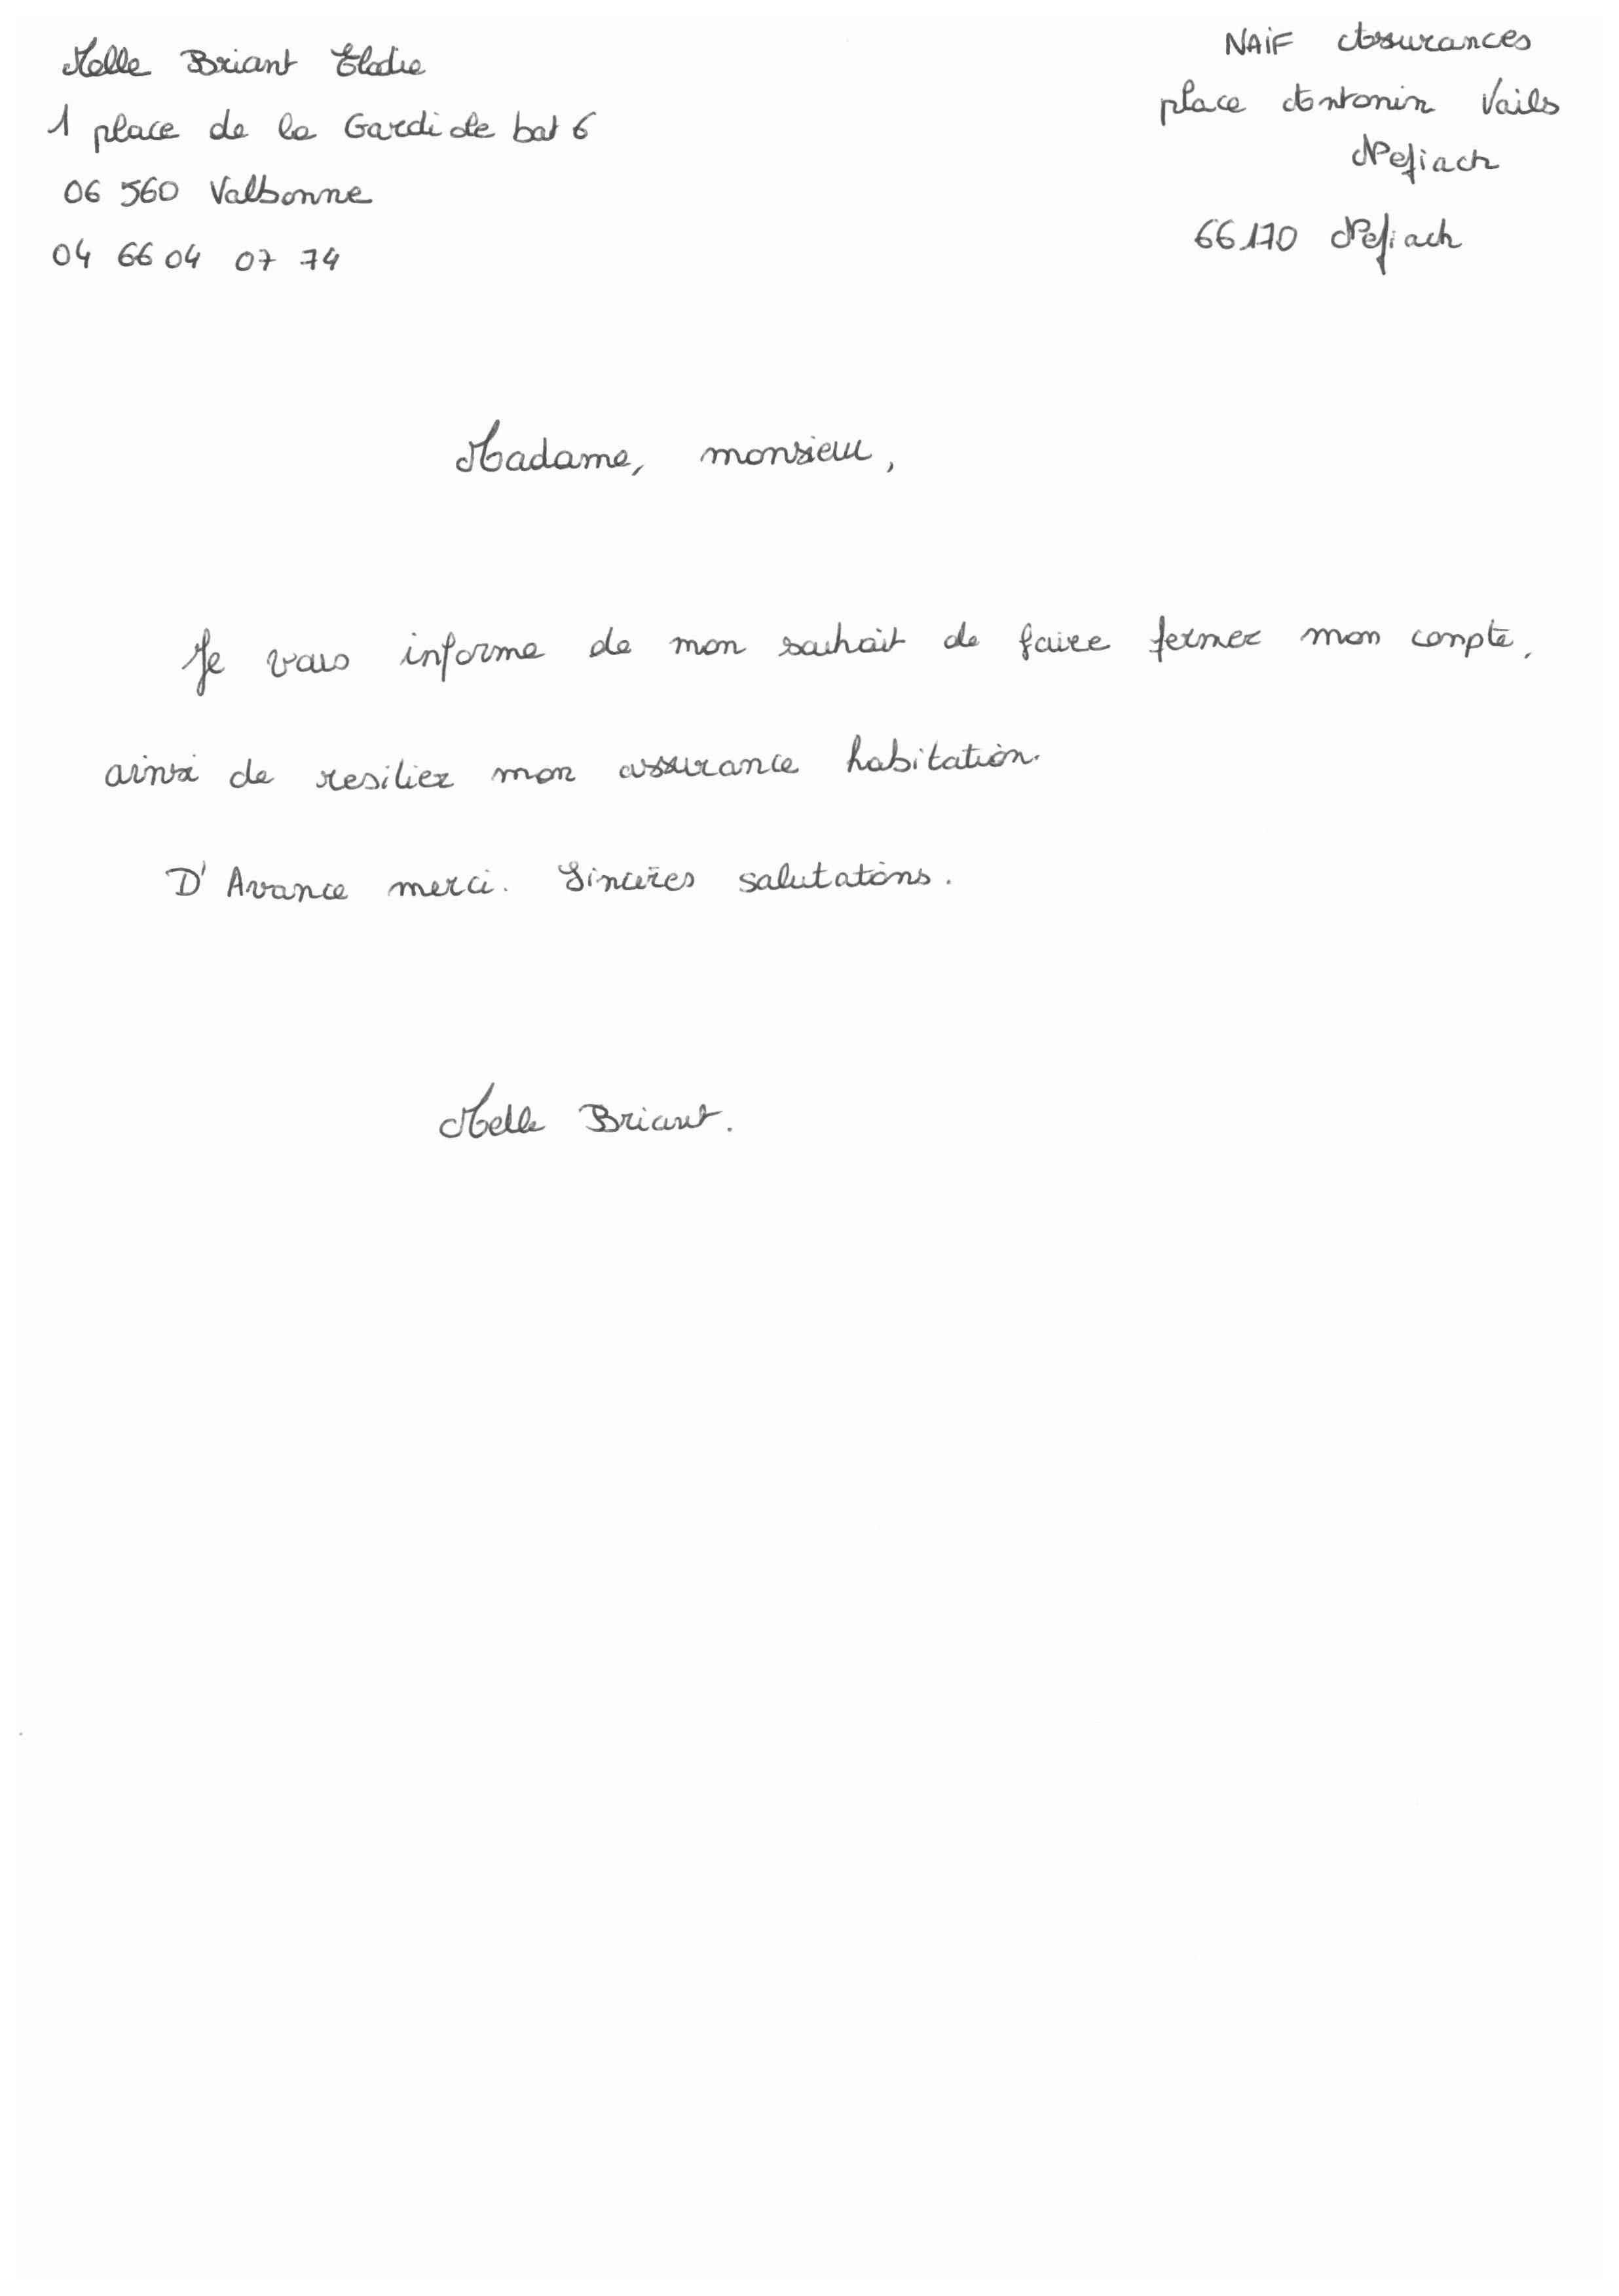 Melle Briant Elodie
1 place de la Gardiole bat 6
06 560 Valbonne
04 66 04 07 74
NAIF Assurances
place Antonin Vails
Nefiach
66170 Nefiach
Madame, monsieur,
Je vous informe de mon souhait de faire fermer mon compte,
ainsi de resilier mon assurance habitation.
D'Avance merci. Sincères salutations.
Melle Briant.